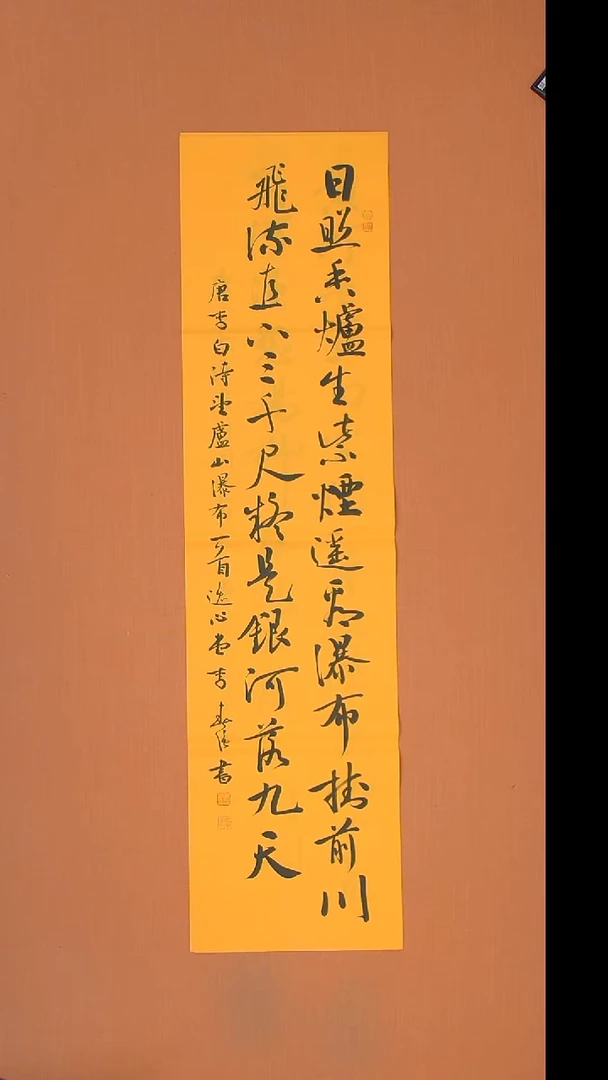 日照香爐生紫煙遥看瀑布挂前川
飛流直下三千尺疑是銀河落九天
唐李白詩望廬山瀑布一首逸心堂李春信書